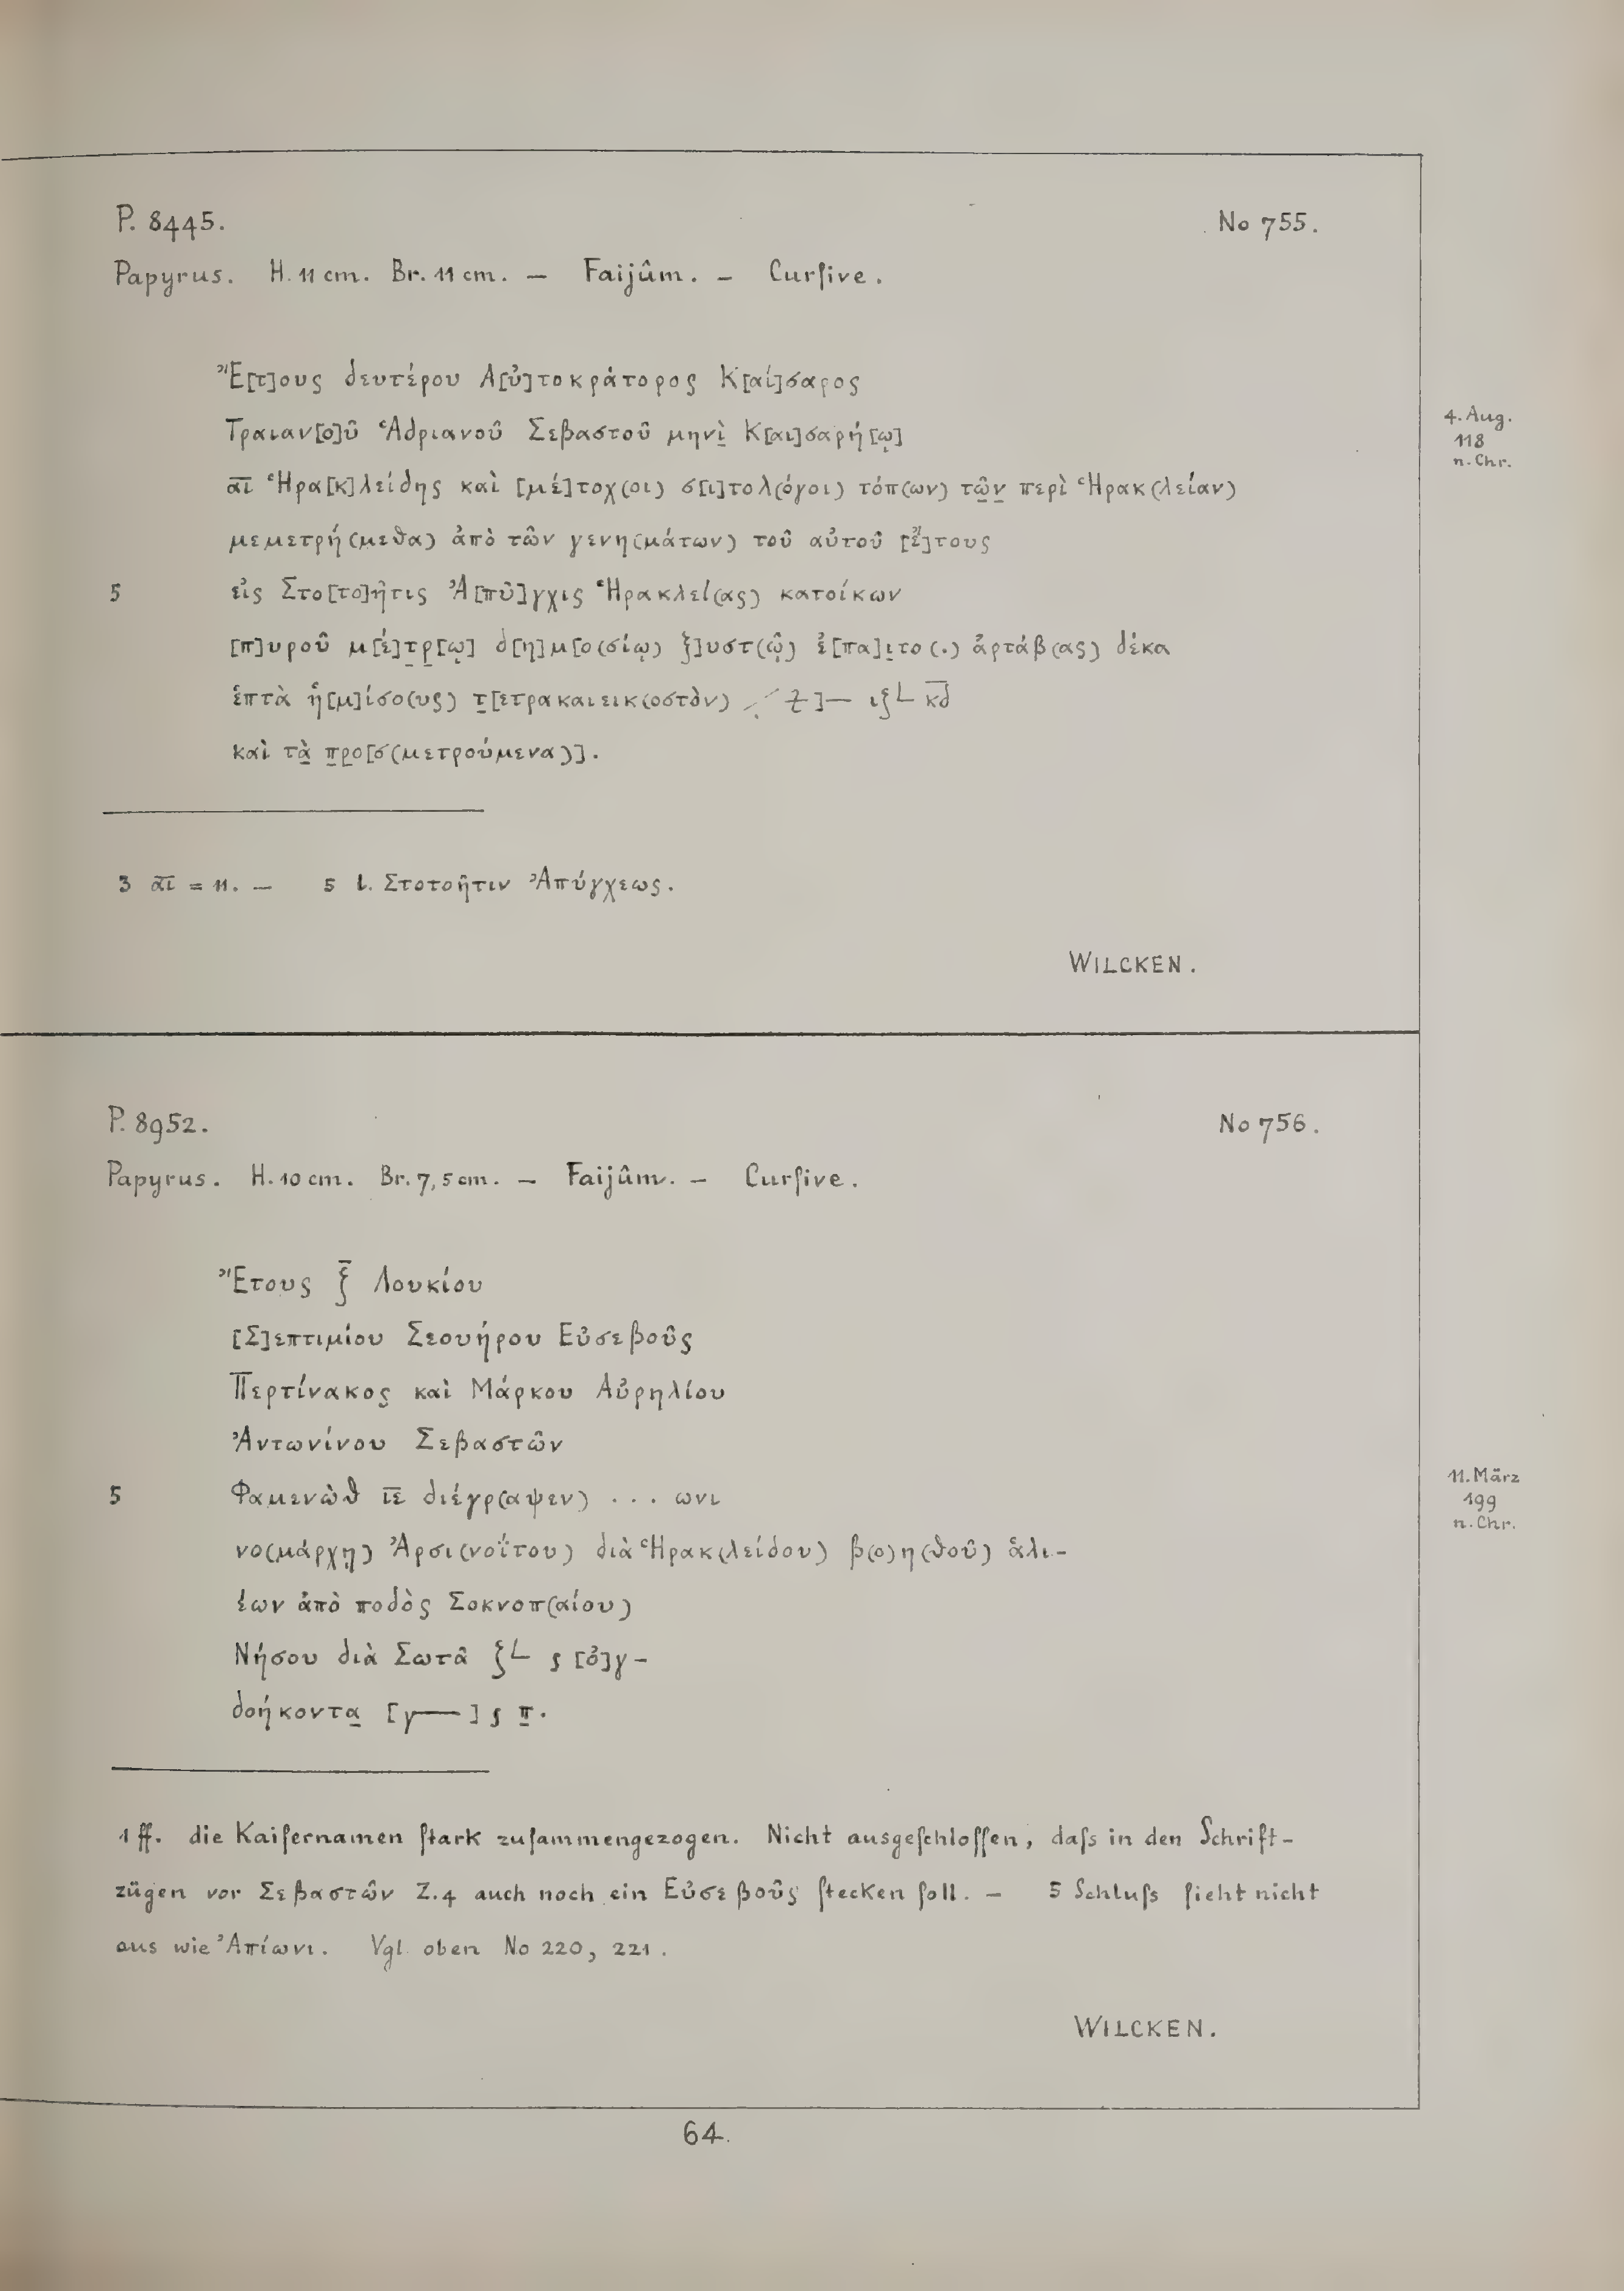 P. 8445. No 755.
Papyrus. H. 11 cm. Br. 11 cm. — Faijûm. — Curſive.
Ἔ[τ]ους δευτέρου Α[ὐ]τοκράτορος Κ[αί]σαρος
Τραιαν[ο]ῦ Ἁδριανοῦ Σεβαστοῦ μηνὶ̣ Κ[αι]σαρή[ῳ]
4. Aug.
118
n. Chr.
α̅ι̅ Ἡρα[κ]λείδης καὶ [μέ]τοχ(οι) σ[ι]τολ(όγοι) τόπ(ων) τῶ̣ν̣ περὶ Ἡρακ(λείαν)
μεμετρή(μεθα) ἀπὸ τῶν γενη(μάτων) τοῦ αὐτοῦ [ἔ]τους
5 εἰς Στο[το]ῆτις Ἀ[πῦ]γχις Ἡρακλεί(ας) κατοίκων
[π]υροῦ μ[έ]τ̣ρ̣[ῳ] δ[η]μ[ο(σίῳ) ξ]υστ(ῷ) ἐ[πα]ι̣το(.) ἀρτάβ(ας) δέκα
ἑπτὰ ἥ[μ]ίσο(υς) τ̣[ετρακαιεικ(οστὸν) ]— ιξ𐅵 κ̅δ̅
καὶ τὰ̣ π̣ρ̣ο[σ(μετρούμενα)].
3 α̅ι̅ = 11. — 5 l. Στοτοῆτιν Ἀπύγχεως.
WILCKEN.
P. 8952. No 756.
Papyrus. H. 10 cm. Br. 7,5 cm. — Faijûm. — Curſive.
Ἔτους ξ̅ Λουκίου
[Σ]επτιμίου Σεουήρου Εὐσεβοῦς
Περτίνακος καὶ Μάρκου Αὐρηλίου
Ἀντωνίνου Σεβαστῶν
5 Φαμενὼθ ι̅ε̅ διέγρ(αψεν) . . . ωνι
11. März
199
n. Chr.
νο(μάρχῃ) Ἀρσι(νοΐτου) διὰ Ἡρακ(λείδου) β(ο)η(θοῦ) ἁλι-
έων ἀπὸ ποδὸς Σοκνοπ(αίου)
Νήσου διὰ Σωτᾶ ξ𐅵 ʃ [ὀ]γ-
δοήκοντα̣ [γ—] ʃ π̣.
1 ff. die Kaiſernamen ſtark zuſammengezogen. Nicht ausgeſchloſſen, daſs in den Schrift-
zügen vor Σεβαστῶν Z. 4 auch noch ein Εὐσεβοῦς ſtecken ſoll. — 5 Schluſs ſieht nicht
aus wie Ἀπίωνι. Vgl. oben No 220, 221.
WILCKEN.
64.